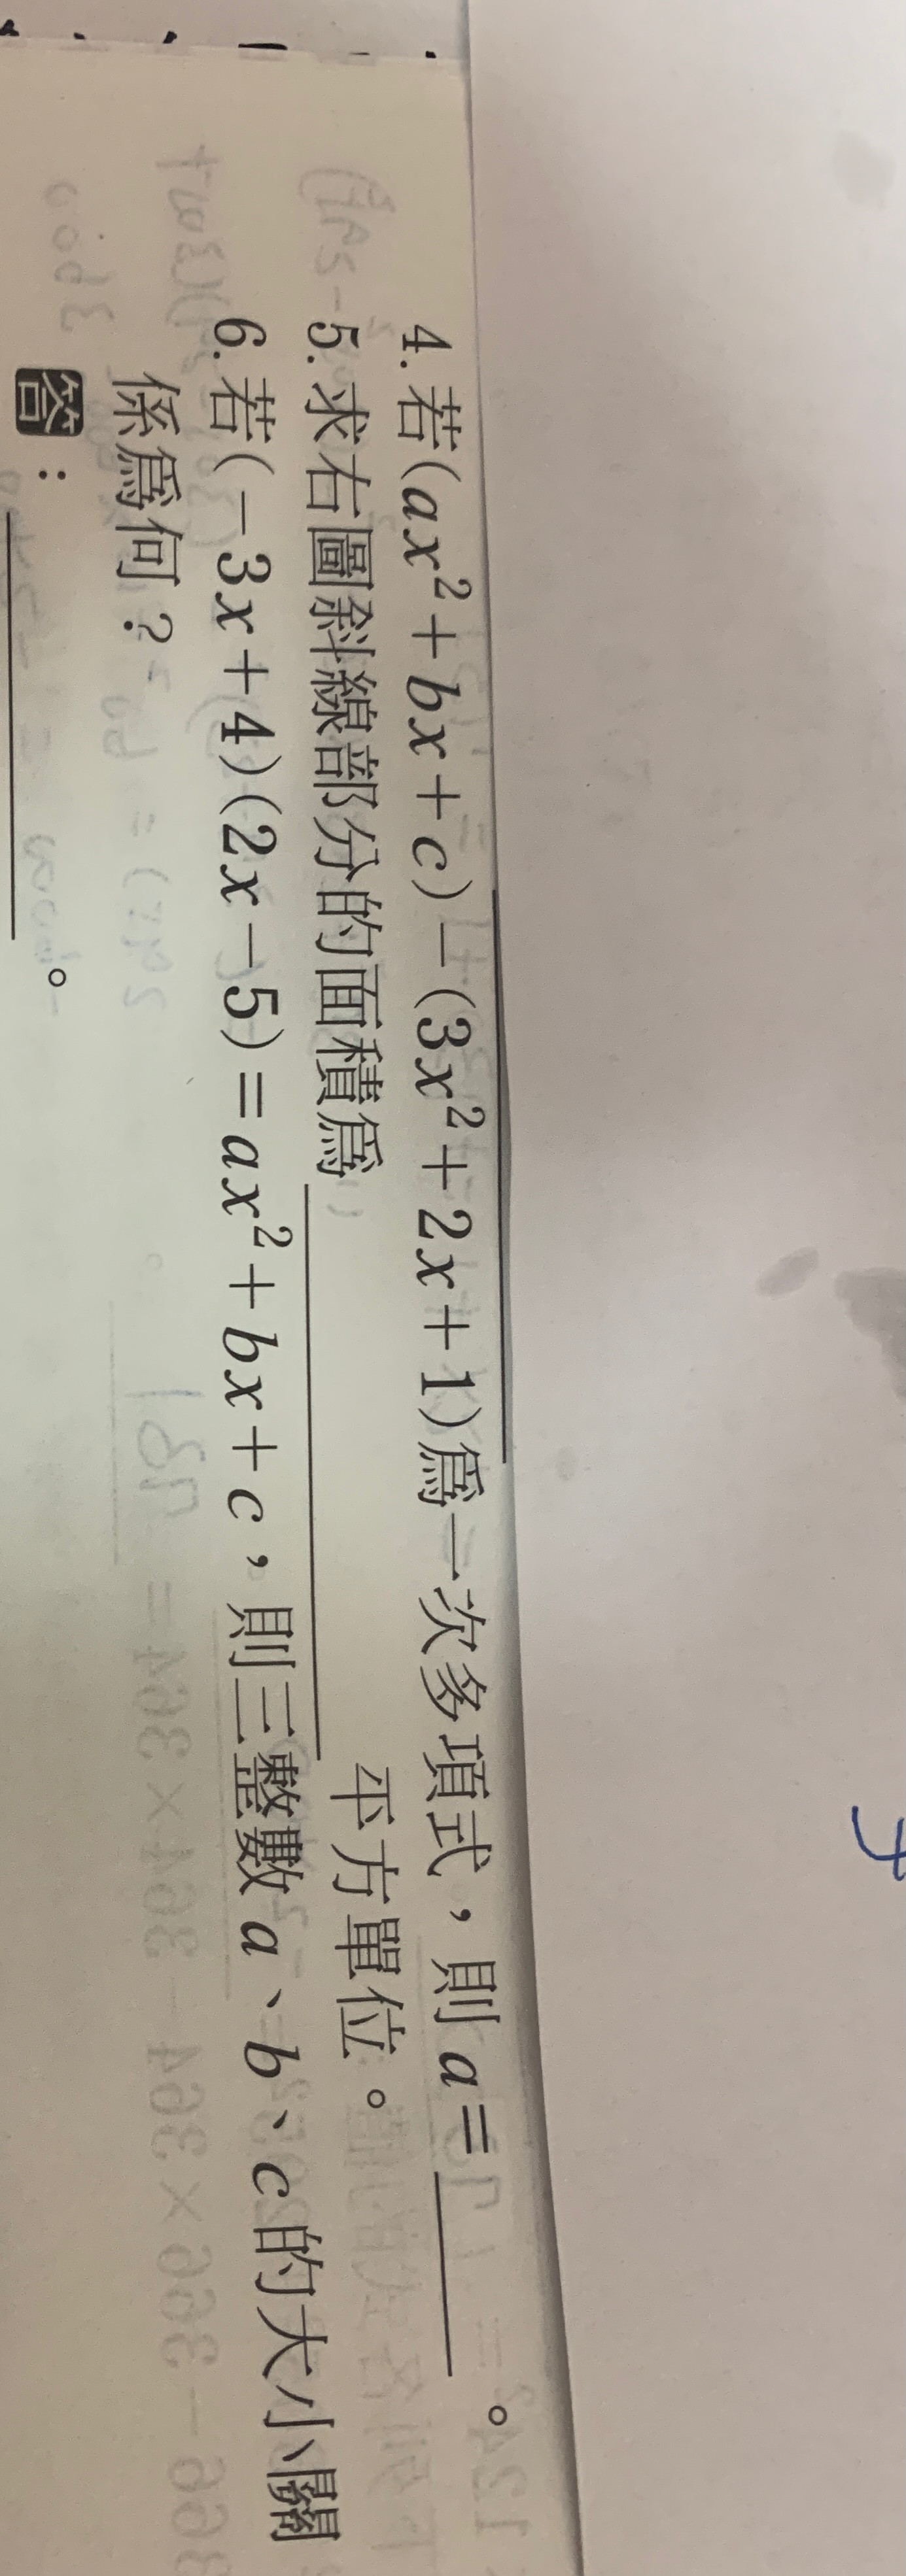 4. 若(ax²+bx+c)－(3x²+2x+1)爲一次多項式，則a=______。
5. 求右圖斜線部分的面積爲______平方單位。
6. 若(－3x+4)(2x－5)=ax²+bx+c，則三整數a、b、c的大小關
係爲何？
答：______。